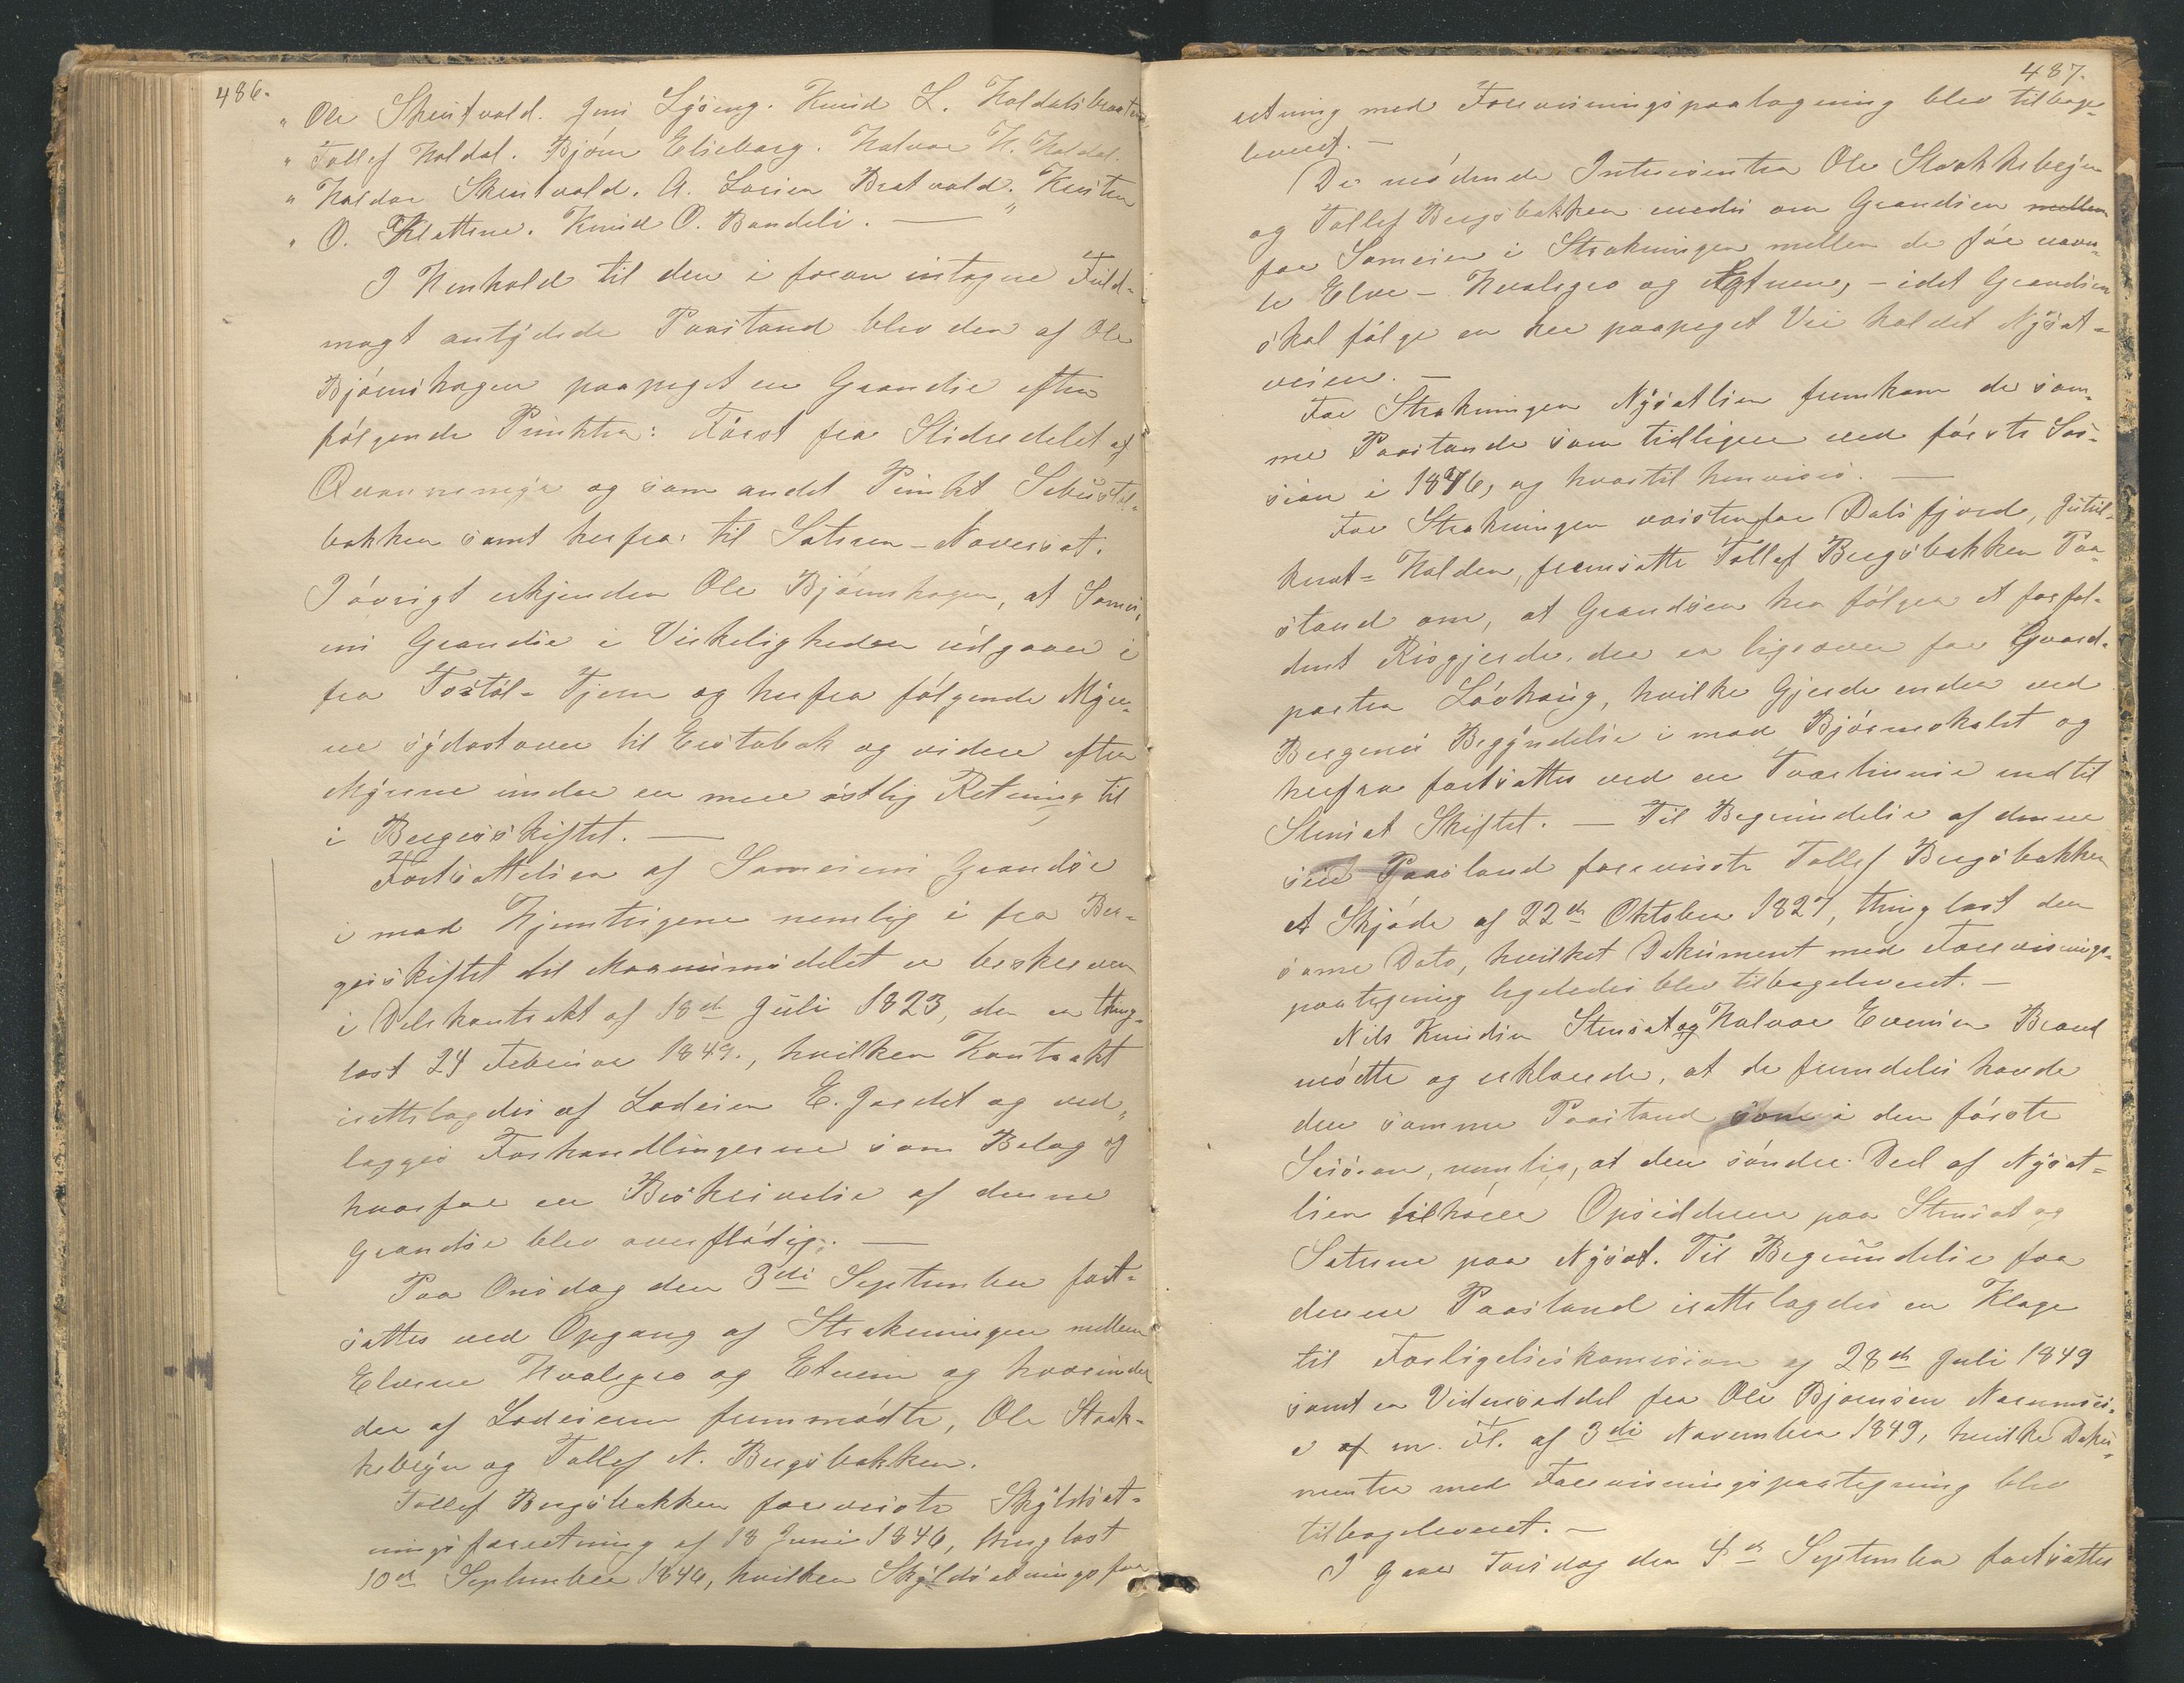 486.
" Ole Skrutvold. Jens Lysøng. Knud L. Haldalsbraaten,
" Tollef Haldal. Bjørn Elsebarg. Halvor H. Haldal.
" Haldor Skrutvold. A. Larsen Bratvold. " Kristen
" O. Klattene. Knud O. Bandeli. —
I Henhold til den i foran intagne Fuld-
magt antydede Paastand blev den af Ole
Bjørnshagen paapeget en Grændse efter
følgende Punkter: Først fra Slidredelet af
og som andet Punkt
bakken samt herfra til Sætren - Naversæt.
I øvrigt erkjender Ole Bjørnshagen, at Samei-
ets Grændse i Virkeligheden udgaaer i
fra Tostøl-Tjern og herfra følgende Myre-
ne sydostover til Erstabak og videre efter
Myrene under en mere østlig Retning til
i Bergesskiftet. —
Fortsættelsen af Sameiets Grændse
i mod Hjemtrigene nemlig i fra Ber-
gesskiftet til Maanimødelet er beskreven
i Delekontrakt af 18de Juli 1823, der er thing-
læst 24 Februar 1849., hvilken Kontrakt
irettelagdes af Lodeier E. Jordet og ved-
lægges Forhandlingerne som Belag og
hvorfor en Beskrivelse af denne
Grændse blev overflødig. —
Paa Onsdag den 3die September fort-
sattes ved Opgang af Strækningen mellem
Elvene Hvalegro og Etnen og hvorunder
der af Lodeierne fremmødte, Ole Stræk-
kebøyn og Tollef N. Bergsbakken.
Tollef Bergsbakken foreviste Skyldsæt-
ningsforretning af 18 Juni 1846, thinglæst
10de September 1846, hvilken Skyldsætningsfor-
487.
retning med Forevisningspaategning blev tilbage-
leveret. —
De mødende Interesenter Ole Strækkebøyn
og Tollef Bergsbakken enedes om Grændsen mellem
for Sameien i Strækningen mellem de før nævn-
te Elve - Hvalegro og Etnen, - idet Grændsen
skal følge en her paapeget Vei kaldet Nysæt-
veien. —
For Strækningen Nysætlien fremkom de sam-
me Paastande som tidligere ved første Ses-
sion i 1876, og hvortil henvises. —
For Strækningen vestenfor Dalsfjord,
Halden, fremsatte Tollef Bergsbakken Paa-
stand om, at Grændsen her følger et forfal-
dent Risgjerde, der er ligeover for Gvard-
parten Løvhaug, hvilke Gjerde ender ved
Bergenes Begyndelse i mod Bjørneskalet og
herfra fortsættes ved en Tværlinie indtil
Stensæt Skiftet. — Til Begrundelse af denne
sin Paastand foreviste Tollef Bergsbakken
et Skjøde af 22de Oktober 1827, thinglæst den
same Dato, hvilket Dokument med Forevisnings-
paategning ligeledes blev tilbageleveret. —
Nils Knudsen Stensæt og Halvor Evensen Brænd
mødte og erklærede, at de fremdeles havde
den samme Paastand som i den første
Session, nemlig, at den søndre Deel af Nysæt-
lien tilhører Opsidderne paa Stensæt og
Sætrene paa Nysæt. Til Begrundelse for
denne Paastand irettelagdes en Klage
til Forligelseskomission af 28de Juli 1849
samt en Vidnesseddel fra Ole Bjørnsen
m. Fl. af 3die November 1849, hvilke Doku-
menter med Forevisningspaategning blev
tilbageleveret. —
I gaar Torsdag den 4de September fortsattes